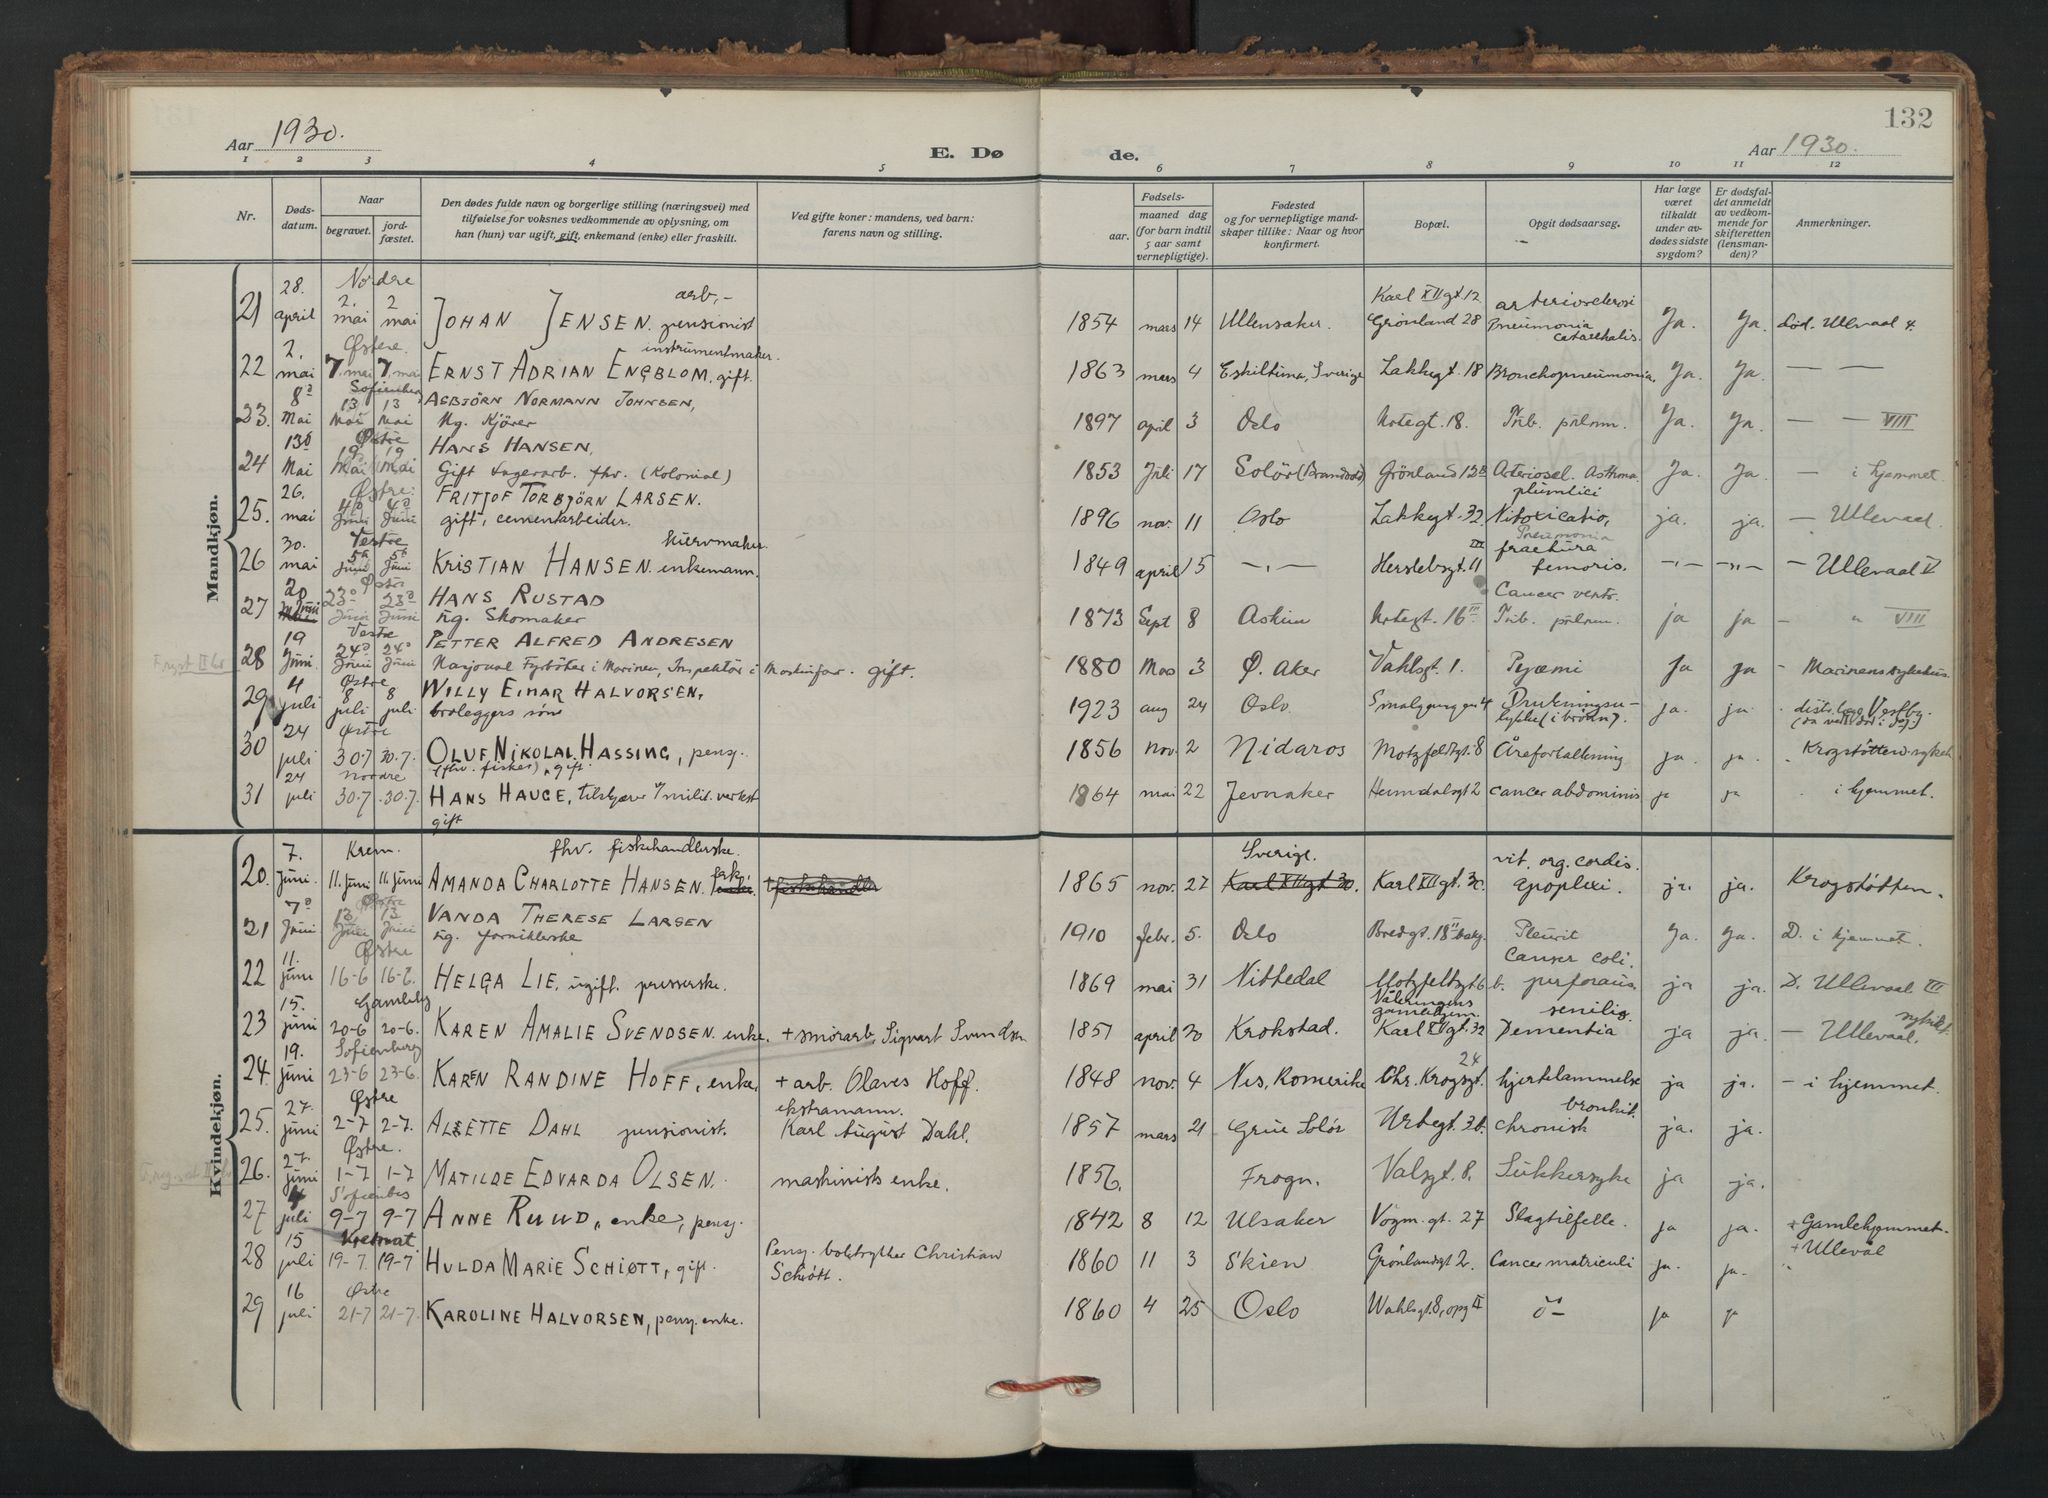 132
Aar 1930.
E. Dø
de.
Aar 1930.
1 2 3 4 5 6 7 8 9 10 11 12
Nr.
Døds-
datum.
Naar
begravet.
jord-
fæstet.
Den dødes fulde navn og borgerlige stilling (næringsvei) med
tilføielse for voksnes vedkommende av oplysning, om
han (hun) var ugift, gift, enkemand (enke) eller fraskilt.
Ved gifte koner: mandens, ved barn:
farens navn og stilling.
Fødsels-
aar.
maaned dag
(for barn indtil
5 aar samt
vernepligtige).
Fødested
og for vernepligtige mand-
skaper tillike: Naar og hvor
konfirmert.
Bopæl.
Opgit dødsaarsag.
Har læge
været
tilkaldt
under av-
dødes sidste
sygdom?
Er dødsfal-
det anmeldt
av vedkom-
mende for
skifteretten
(lensman-
den)?
Anmerkninger.
Mandkjøn.
28. Nordre arb. Karl XII gt. 12 arteriosclerosi
21 april 2. mai 2 mai JOHAN JENSEN. pensionist 1854 mars 14 Ullensaker. Grønland 28 Pneumonia catarrhalis. Ja. Ja. Død. Ullevaal
2. Østre. instrumentmaker.
22 mai 7. mai 7. mai ERNST ADRIAN ENGBLOM, gift. 1863 mars 4 Eskiltuna, Sverige Lakkegt. 18 Bronchopneumonia. Ja. Ja. — —
8 Sofienberg ASBJÖRN NORMANN JOHNSEN,
23. Mai 13 Mai 13 Mai Ug. Kjører 1897 april 3 Oslo Urtegt. 18. Tub. pulm. Ja. Ja. — — VIII
13 Østre HANS HANSEN,
24 Mai 19 Mai 19 Mai Gift Lagerarb. fhv. (Kolonial) 1853 Juli 17 Solör (Brandvold) Grönland 13 B Arteriosel. Asthma Ja. Ja. — i hjemmet.
26. Østre. FRITJOF TORBJÖRN LARSEN.
25. mai 4 Juni 4 Juni gift, cementarbeider. 1896 nov. 11 Oslo Lakkegt. 32 ja. ja. — Ullevaal.
30. Vestre
26 mai 5 Juni 5 Juni KRISTIAN HANSEN. enkemann. 1849 april 15 —„— Herslebsgt. 11 III Pneumonia fractura femoris. —„— —„— — Ullevaal V
20 Østre HANS RUSTAD Cancer ventr.
27 Juni 23 Juni 23 Juni ug. Skomaker 1873 Sept 8 Askim Urtegt. 16 III Tub. pulm. ja ja — „ VIII
19 Vestre PETTER ALFRED ANDRESEN
28 Juni. 24 Juni 24 Juni Fyrböter i Marinen, Inspektör i gift. 1880 Mars 3 Ø. Aker Vahlsgt. 1. Pyæmi Ja Ja - Marinens sykehus.
4 Østre WILLY EINAR HALVORSEN,
29 juli 8 juli 8 juli. broleggers sön 1923 aug 24 Oslo. Smalgangen 4 Drukningsu-lykke (i brönn). ja. ja. Vestby.
24 Østre
30 juli 30.7 30.7. OLUF NIKOLAI HASSING, pensj. 1856 nov. 2 Nidaros Motzfeldtgt. 8 Åreforkalkning ja. ja. Krogstötten sykeh.
(fhv. fisker), gift.
24 nordre
31 juli 30.7. 30.7. HANS HAUGE, tilskjærer v/milit. verkst 1864 mai 22 Jevnaker Heimdalsgt 2 cancer abdominis ja ja i hjemmet.
gift
Kvindekjøn.
7. Krem. fhv. fiskehandlerske. Sverige. vit. org. cordis.
20. Juni. 11. Juni 11. Juni AMANDA CHARLOTTE HANSEN. 1865 nov. 27 Karl XII gt 30. Karl XII gt. 30. apoplexi. ja. ja. Krogstötten.
7 Østre VANDA THERESE LARSEN
21 Juni 13 Juni 13 Juni ug. forniklerske 1910 febr. 5. Oslo Bredgt. 18 II bakg. Pleurit Ja. Ja. D. i hjemmet.
11. Østre Cancer coli.
22 juni 16-6 16-6. HELGA LIE, ugift. presserske. 1869 mai 31 Nittedal Motzfeldtsgt 6 b. perforans ja ja. D. Ullevaal III
15. Gamleby Vålerengens gamlehjem. senilis.
23 juni 20-6 20-6. KAREN AMALIE SVENDSEN. enke. + smörarb. Sigvart Svendsen 1851 april 30 Krokstad. Karl XII gt. 32 Dementia ja ja. — Ullevaal. sykeh.
19. Sofienberg
24. juni 23-6 23-6. KAREN RANDINE HOFF, enke, + arb. Olaves Hoff. 1848 nov. 4 Nes, Romerike Chr. Krogsgt. 24 hjertelammelse ja ja. — i hjemmet.
27. Østre ekstramann. bronkit.
25. juni 2-7 2-7. ALETTE DAHL pensionist. Karl August Dahl. 1857 mars 21 Grue Solör Urtegt. 36. chronisk ja. ja.
27. Østre.
26. juni 1-7 1-7 MATILDE EDVARDA OLSEN. maskinists enke. 1856. Frogn. Valsgt. 8. Sukkersyke ja ja.
4 Sofienbg
27 juli 9-7 9-7 ANNE RUUD, enke, pensj. 1842 8 12 Ulsaker Vognm. gt. 27 Slagtilfelle. ja ja. + Gamlehjemmet.
15 Kremat. Pensj. boktrykker Christian + Ullevål
28 juli 19-7. 19-7 HULDA MARIE SCHIØTT, gift. Schiött. 1860 11 3 Skien Grönlandsgt 2. Cancer matriculi ja. ja.
16 Østre
29 juli 21-7 21-7. KAROLINE HALVORSEN, pensj. enke. 1860 4 25 Oslo Wahlsgt. 8, opg II ja ja